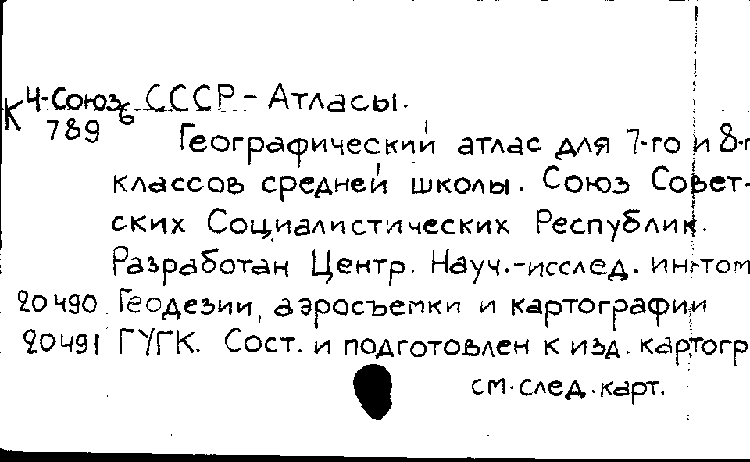 К 4-Союз 6 СССР - Атласы.
789 Географический атлас для 7-го и 8-г
классов средней школы. Союз Совет-
ских Социалистических Республик.
Разработан Центр. Науч.-исслед. ин-том
20490 Геодезии, аэросъемки и картографии
20491 ГУГК. Сост. и подготовлен к изд. картогр
см. след. карт.